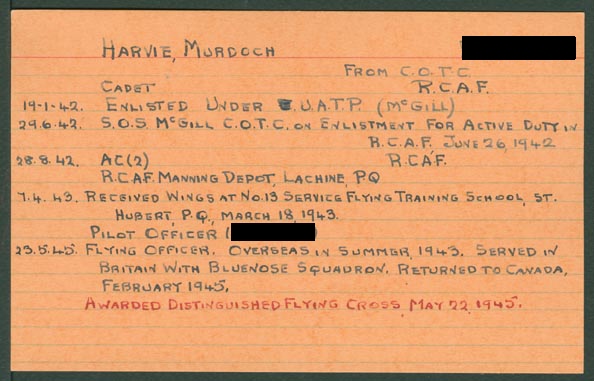 HARVIE, MURDOCH
FROM C.O.T.C.
CADET R.C.A.F.
19-1-42. ENLISTED UNDER U.A.T.P. (MCGILL)
29.6.42. S.O.S. MCGILL C.O.T.C. ON ENLISTMENT FOR ACTIVE DUTY IN
R.C.A.F. JUNE 26, 1942
28.8.42. AC(2) R.C.A.F.
R.C.A.F. MANNING DEPOT, LACHINE, P.Q
7.4.43. RECEIVED WINGS AT NO.13 SERVICE FLYING TRAINING SCHOOL, ST.
HUBERT, P.Q., MARCH 18, 1943.
PILOT OFFICER (
23.5.45. FLYING OFFICER. OVERSEAS IN SUMMER, 1943. SERVED IN
BRITAIN WITH BLUENOSE SQUADRON. RETURNED TO CANADA,
FEBRUARY 1945.
AWARDED DISTINGUISHED FLYING CROSS, MAY 22, 1945.